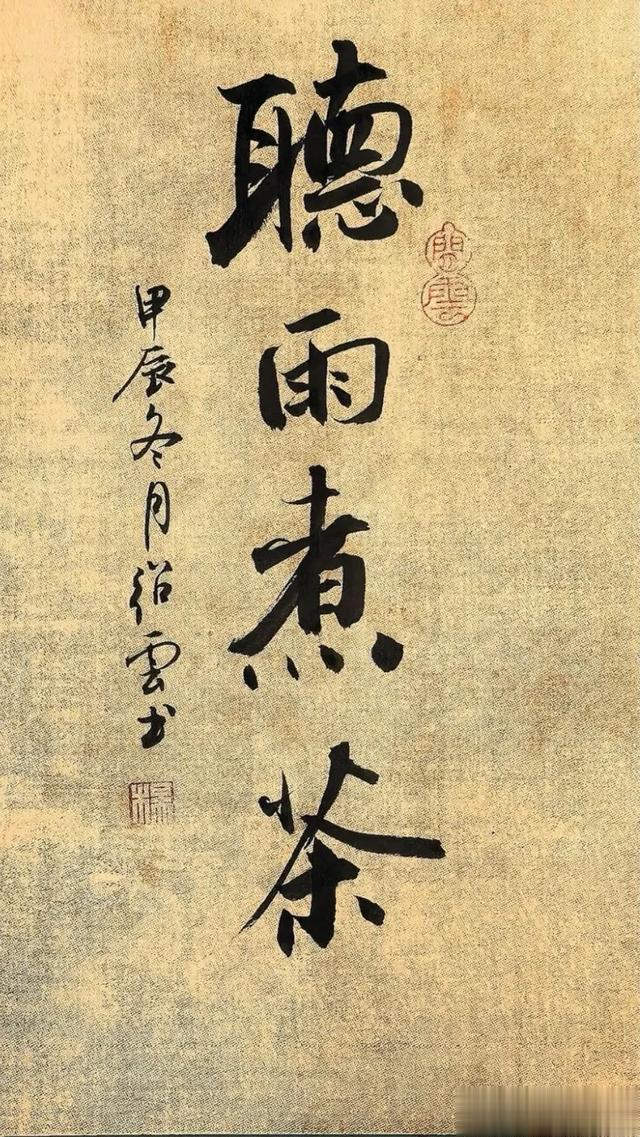 聽雨煮茶
甲辰冬月紹雲书